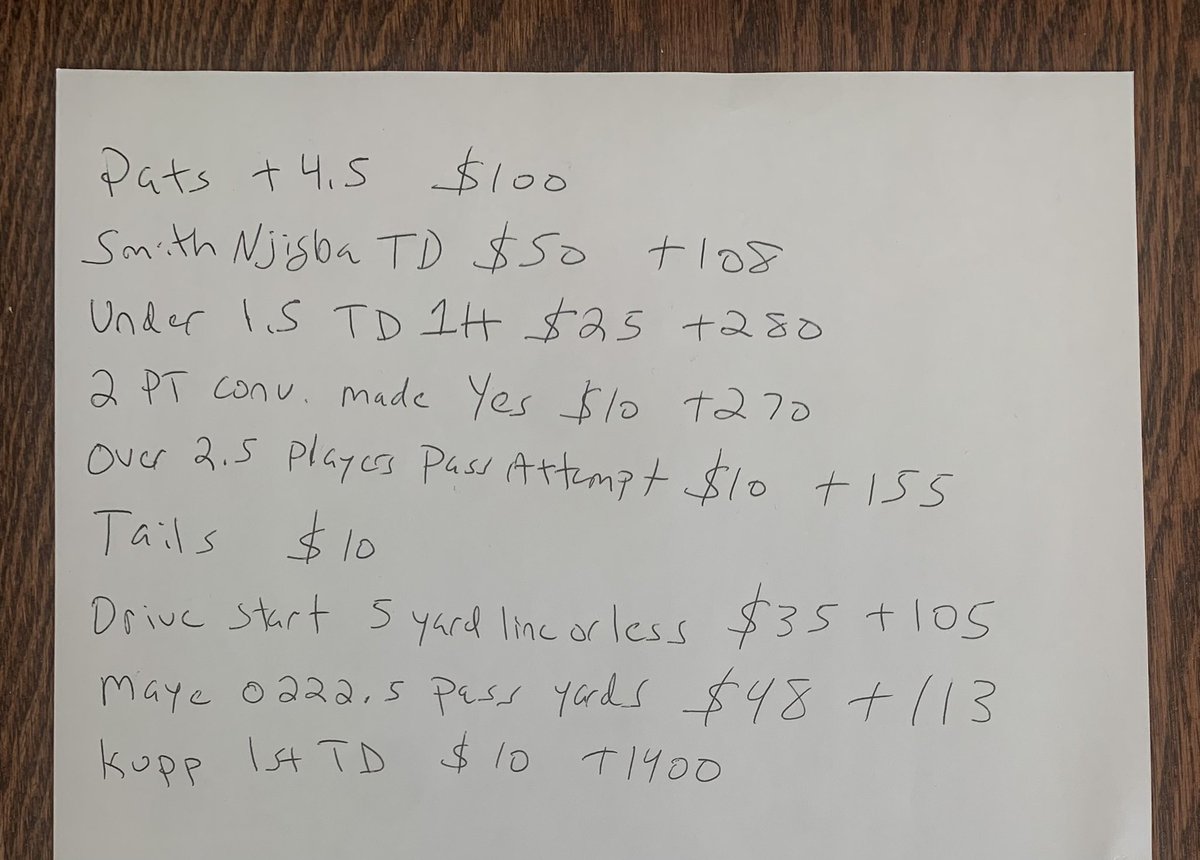 Pats +4.5 $100
Smith Njigba TD $50 +108
Under 1.5 TD 1H $25 +280
2 PT conv. made Yes $10 +270
Over 2.5 Players Pass Attempt $10 +155
Tails $10
Drive start 5 yard line or less $35 +105
Maye O 222.5 Pass yards $48 +113
Kupp 1st TD $10 +1400